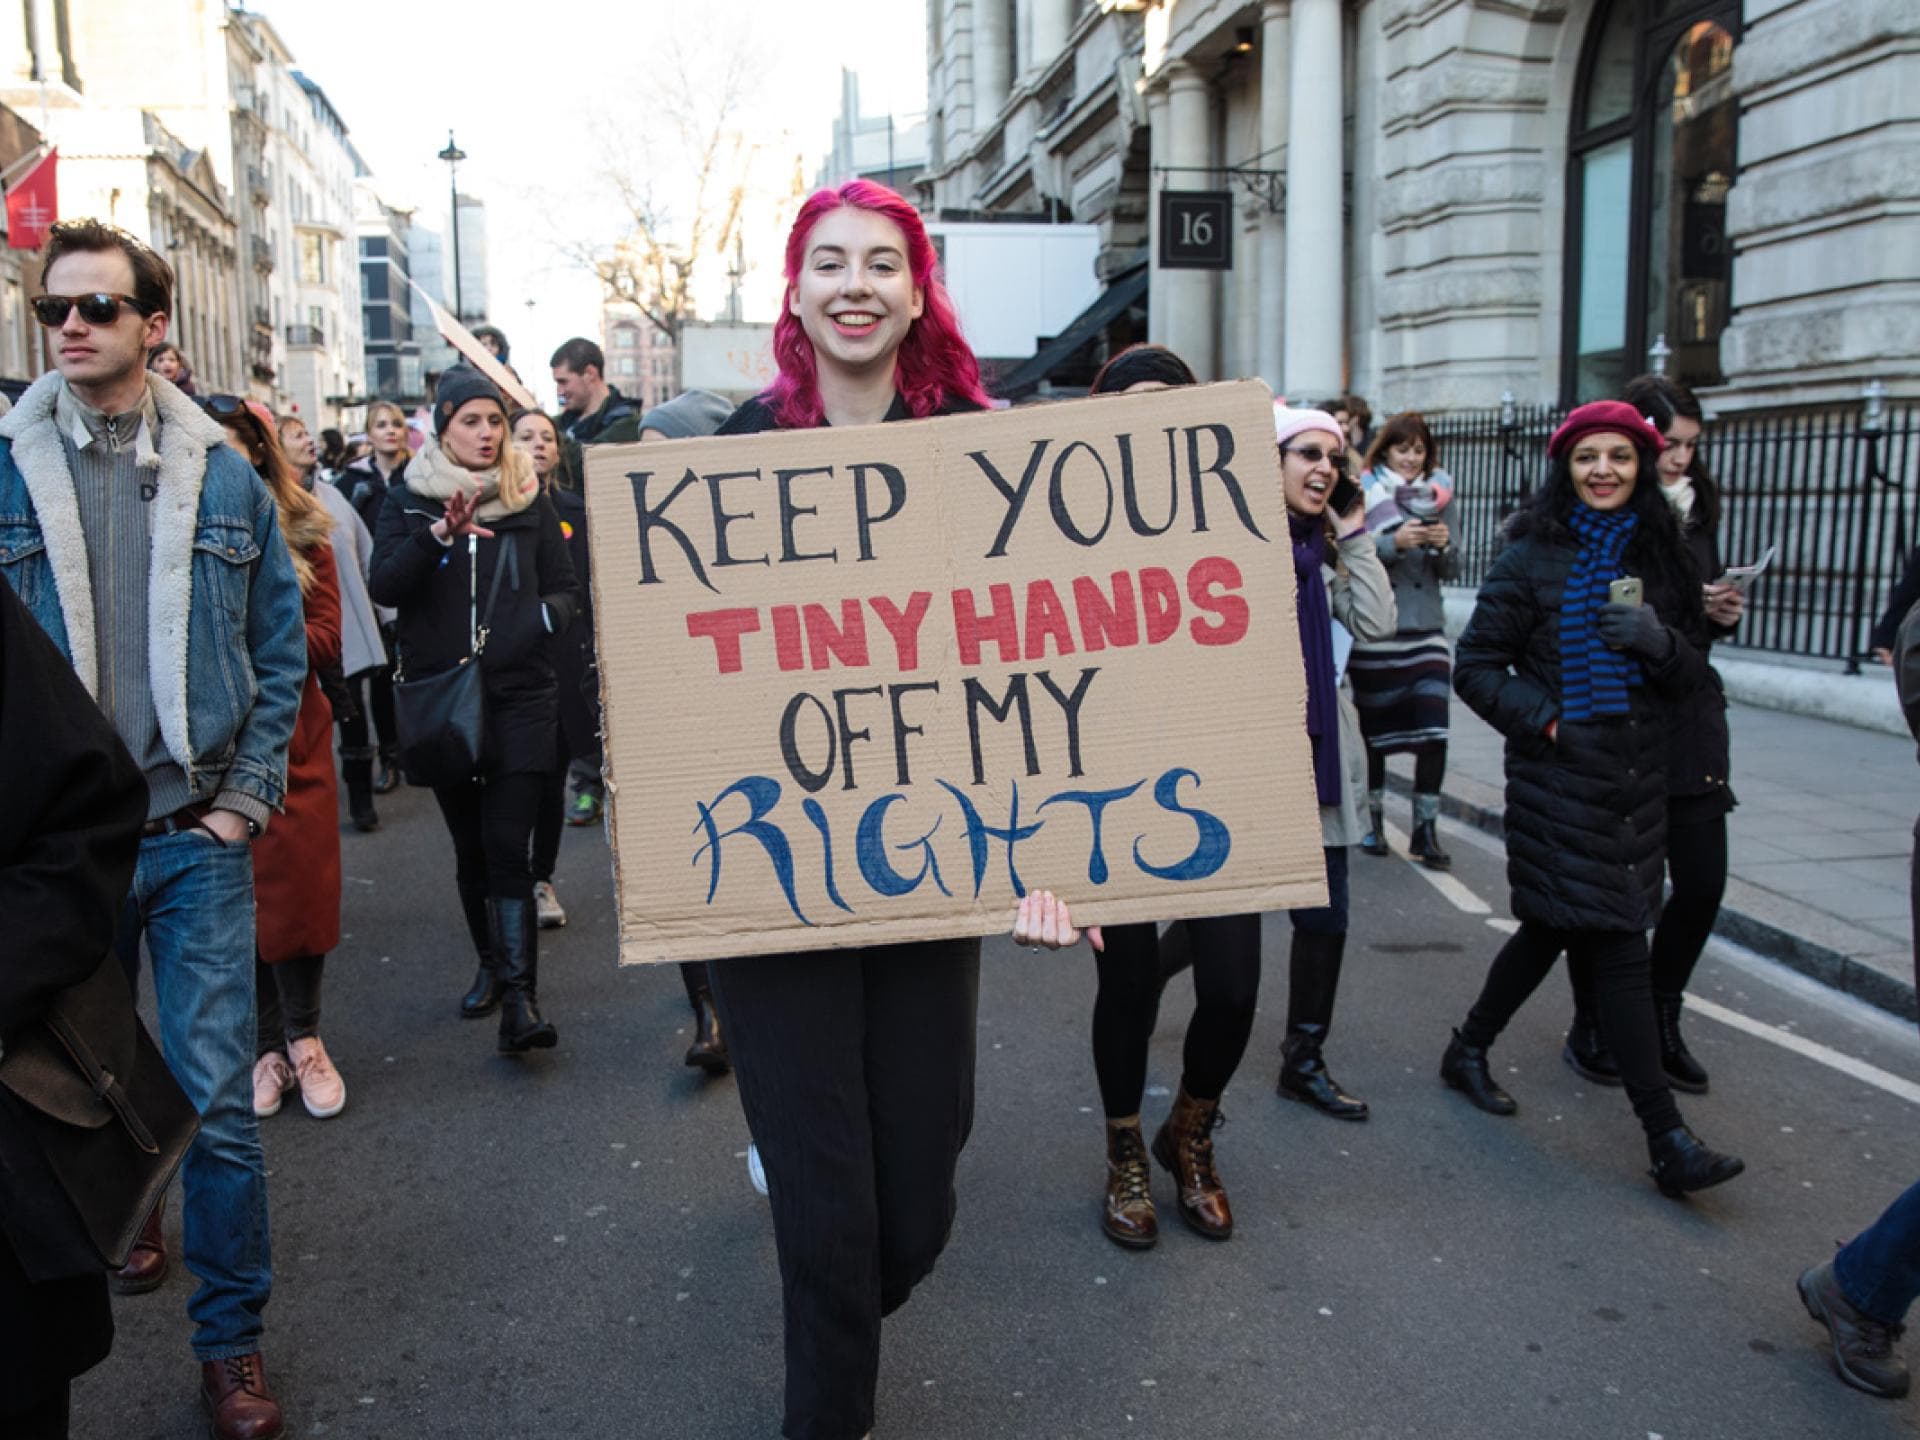 KEEP YOUR
TINY HANDS
OFF MY
RIGHTS
16